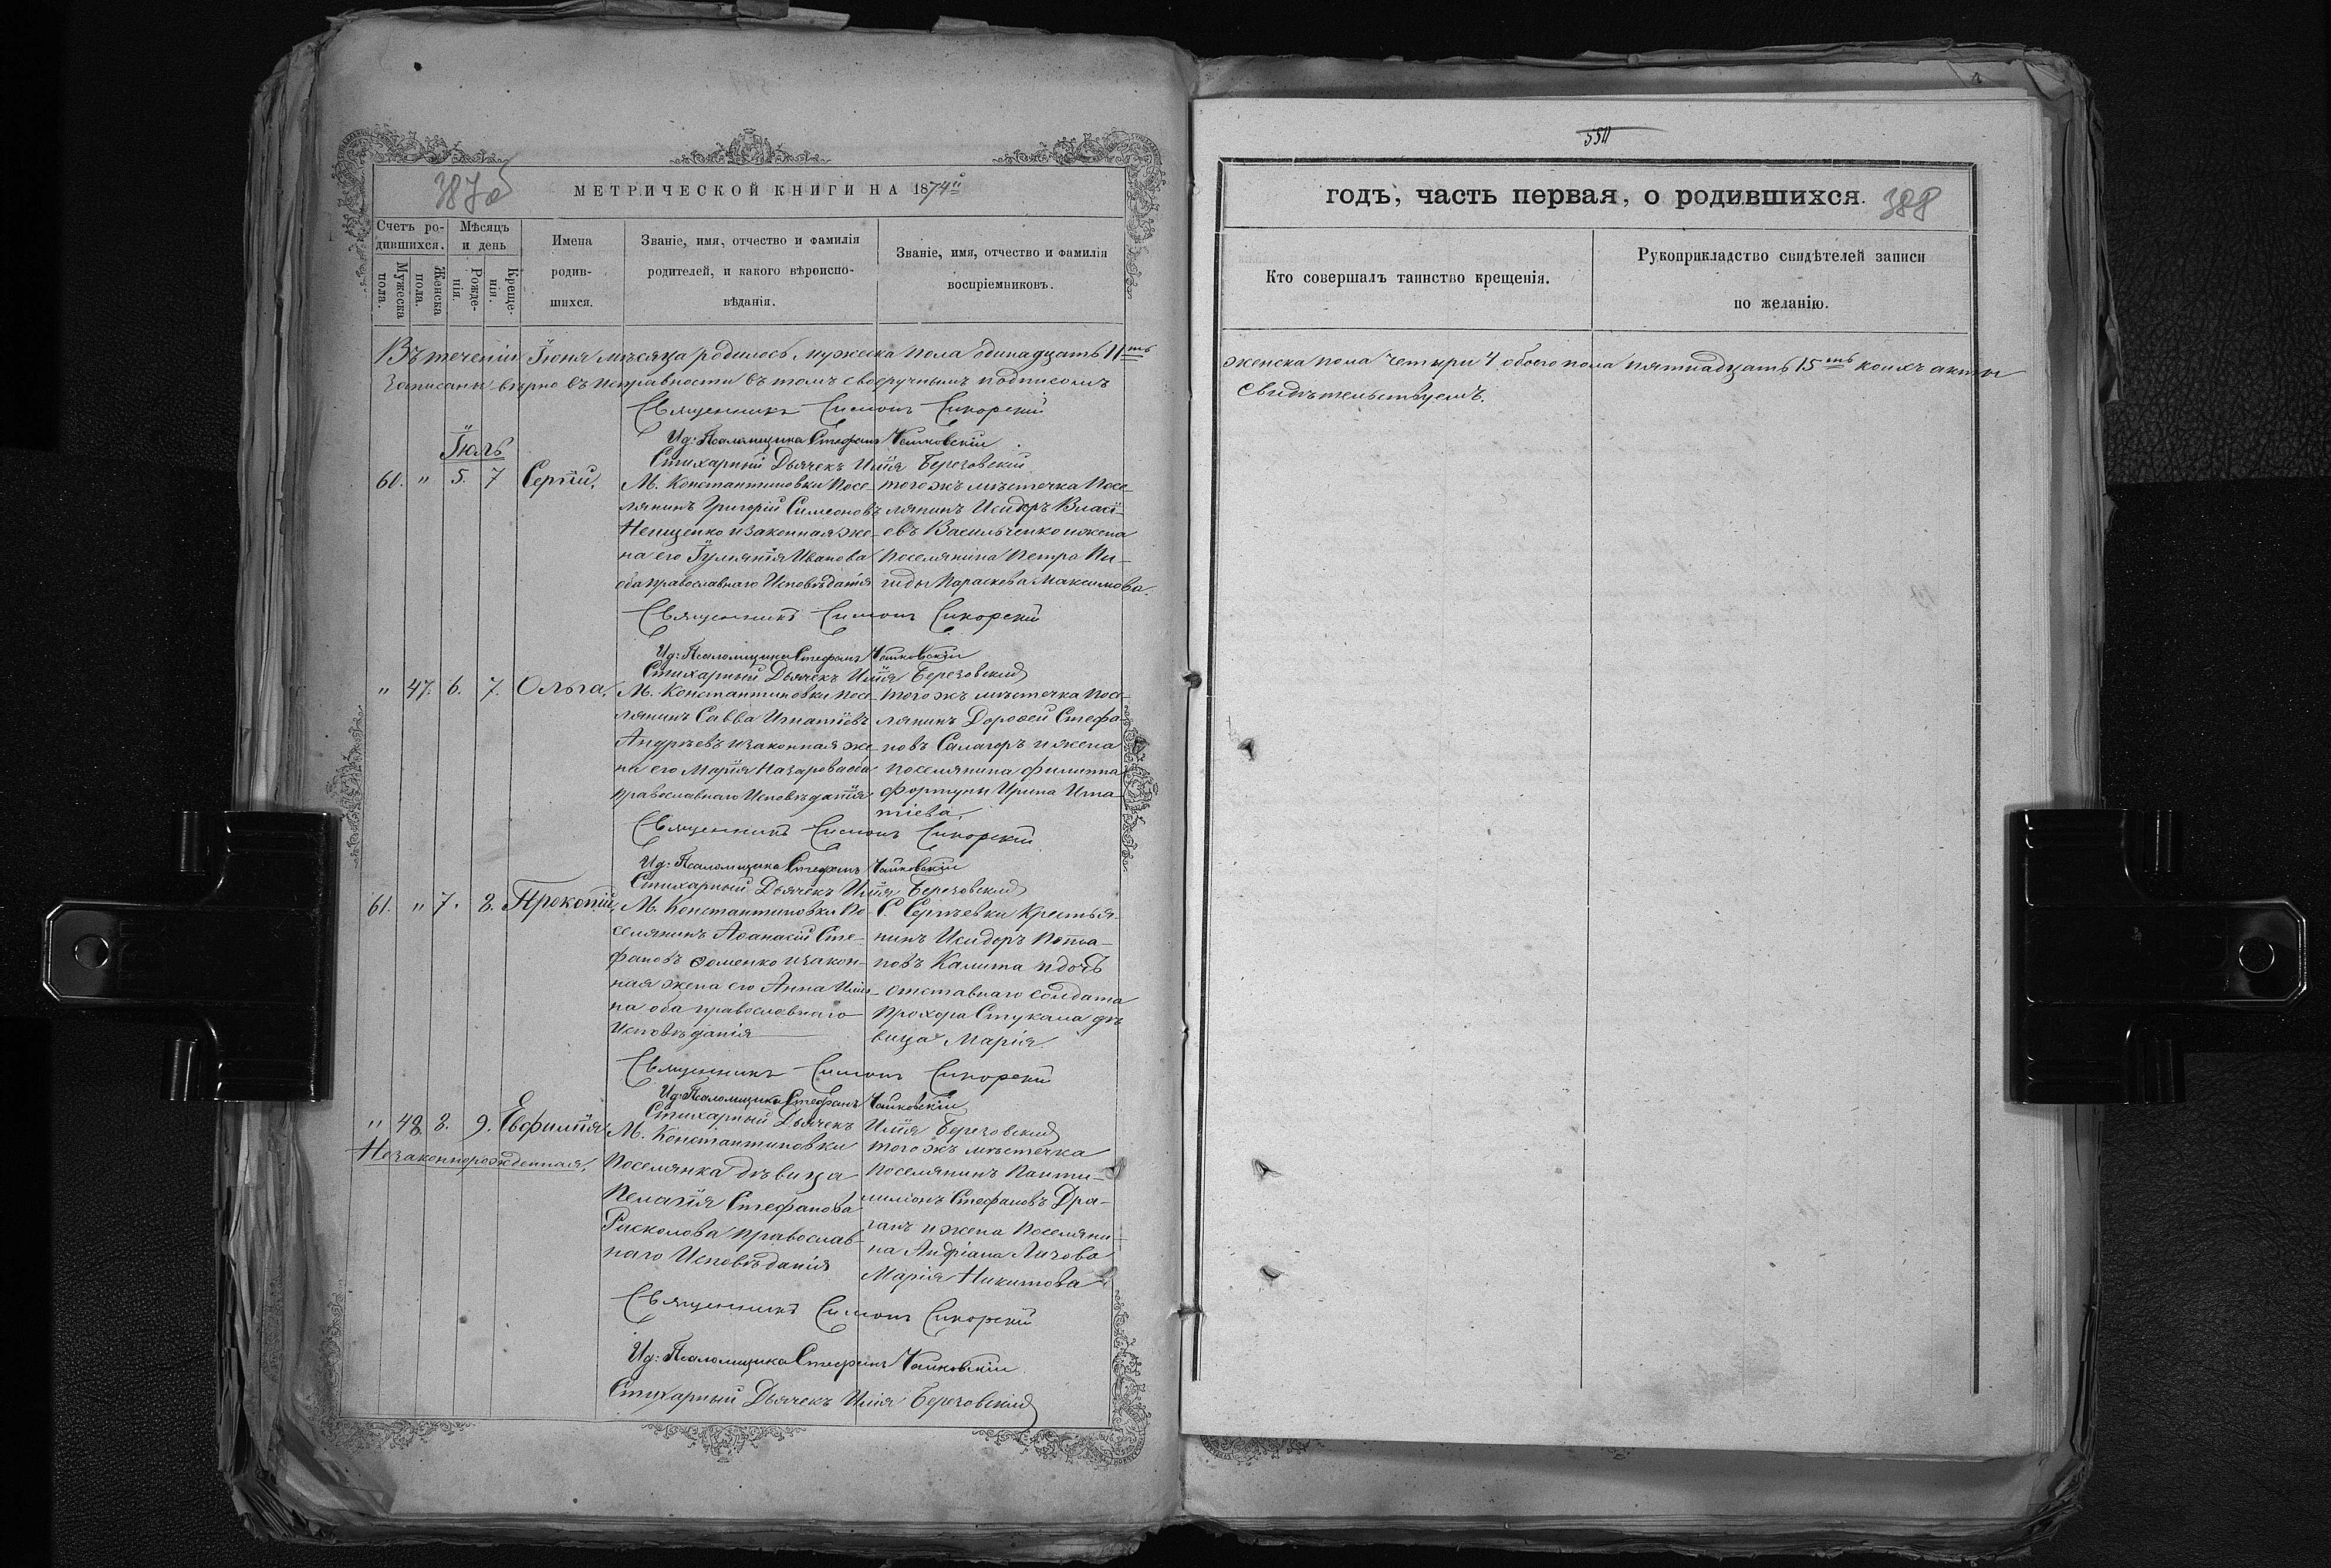 387об
МЕТРИЧЕСКОЙ КНИГИ НА 1874й
Счетъ ро-
дившихся.
Мѣсяцъ
и день
Мужеска
пола.
Женска
пола.
Рожде-
нія.
Креще-
нія.
Имена
родив-
шихся.
Званіе, имя, отчество и фамилія
родителей, и какого вѣроиспо-
вѣданія.
Званіе, имя, отчество и фамилія
воспріемниковъ.
Въ теченіи Іюня мѣсяца родилось мужеска пола одинадцать 11ть
Записаны вѣрно въ исправности въ томъ своеручнымъ подписомъ
Священникъ Симонъ Сикорскій
Ид: Псаломщика Стефанъ Чайковскій
Стихарный Дьячекъ Илія Березовскій
Іюль
60. " 5. 7 Сергій.
М. Константиновки Посе-
лянинъ Григорій Симеоновъ
Ненщенко и законная же-
на его Іуліанія Иванова
оба православнаго Исповѣданія
того жъ мѣстечка Посе-
лянинъ Исидоръ Власі-
евъ Васильченко и жена
поселянина Петра Ли-
гиды Параскева Максимова.
Священникъ Симонъ Сикорскій
Ид: Псаломщика Стефанъ Чайковскій
Стихарный Дьячекъ Илія Березовскій
" 47. 6. 7. Ольга.
М. Константиновки посе-
лянинъ Савва Игнатіевъ
Андрѣевъ и законная же-
на его Марія Назарова оба
православнаго Исповѣданія
того жъ мѣстечка посе-
лянинъ Дороѳей Стефа-
новъ Салагоръ и жена
поселянина Филиппа
Фортуны Ирина Игна-
тіева.
Священникъ Симонъ Сикорскій
Ид: Псаломщика Стефанъ Чайковскій
Стихарный Дьячекъ Илія Березовскій
61. " 7. 8. Прокопій.
М. Константиновки По-
селянинъ Аѳанасій Сте-
фановъ Ѳоменко и закон-
ная жена его Анна Ильи-
на оба православнаго
Исповѣданія
С. Сергѣевки Крестья-
нинъ Исидоръ Пота-
повъ Калита и дочь
отставнаго солдата
Прохора Стукала дѣ-
вица Марія.
Священникъ Симонъ Сикорскій
Ид: Псаломщика Стефанъ Чайковскій
Стихарный Дьячекъ Илія Березовскій
" 48. 8. 9. Евфимія
Незаконнорожденная.
М. Константиновки
Поселянка дѣвица
Пелагія Стефанова
Расколова православ-
наго Исповѣданія
того жъ мѣстечка
поселянинъ Панти-
лимонъ Стефановъ Дра-
ганъ и жена Поселяни-
на Андріана Лизова
Марія Никитова
Священникъ Симонъ Сикорскій
Ид: Псаломщика Стефанъ Чайковскій
Стихарный Дьячекъ Илія Березовскій
550
годъ, часть первая, о родившихся. 388
Кто совершалъ таинство крещенія.
Рукоприкладство свидѣтелей записи
по желанію.
женска пола четыри 4 обоего пола пятнадцать 15ть коихъ акты
свидѣтельствуемъ.